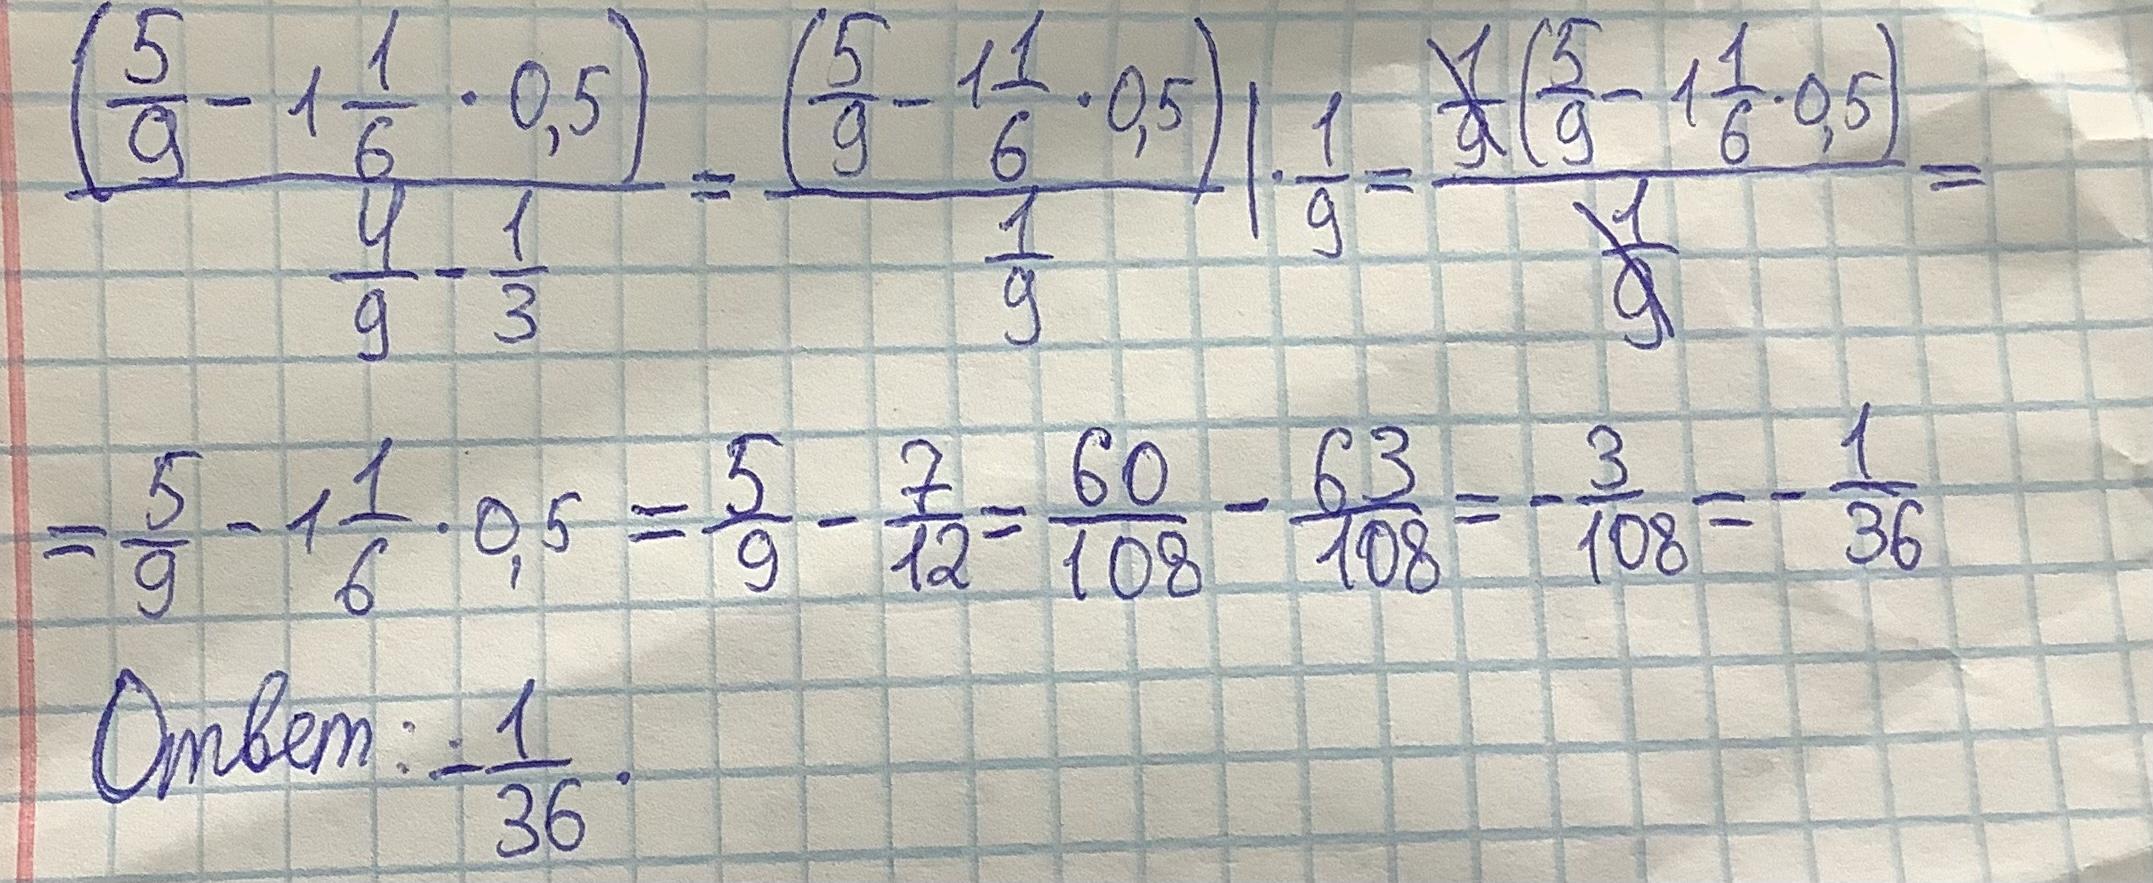 (5/9 - 1 1/6 · 0,5) / (4/9 - 1/3) = (5/9 - 1 1/6 · 0,5) / (1/9) | · 1/9 = 1/9 (5/9 - 1 1/6 · 0,5) / (1/9) =
= 5/9 - 1 1/6 · 0,5 = 5/9 - 7/12 = 60/108 - 63/108 = - 3/108 = - 1/36
Ответ: - 1/36.